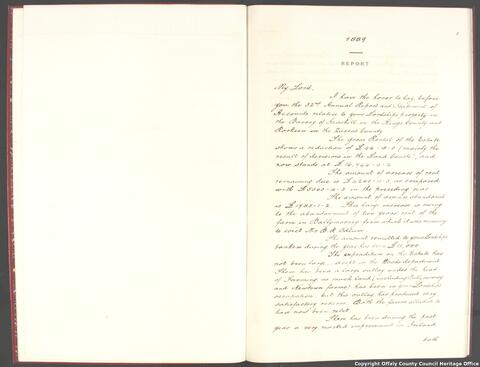 1889
REPORT
1
My Lord,
I have the honor to lay before
you the 32nd Annual Report and Statement of
Accounts relative to your Lordship's property in
the Barony of Geashill in the Kings County and
in the Queens County
The gross Rental of the Estate
shows a reduction of (mainly the
result of decisions in the Land Courts), and
now stands at
The amount of arrears of rent
remaining due is as compared
with in the preceding year
The amount of arrears abandoned
is This large increase is owing
to the abandonment of two years rent of the
farm in Ballymooney from which it was necessary
to evict Mr
The amount remitted to your Lordships
bankers during the year has been £11,000
The expenditure on the Estate has
not been large except in the Woods department
There has been a large outlay under the head
of Farming as much land (including Ballymooney
and Newtown farms) has been in your Lordships
occupation, but this outlay has produced very
satisfactory returns. Both the farms alluded to
have now been relet.
There has been during the past
year a very marked improvement in Ireland
both
© Copyright Offaly County Council Heritage Office